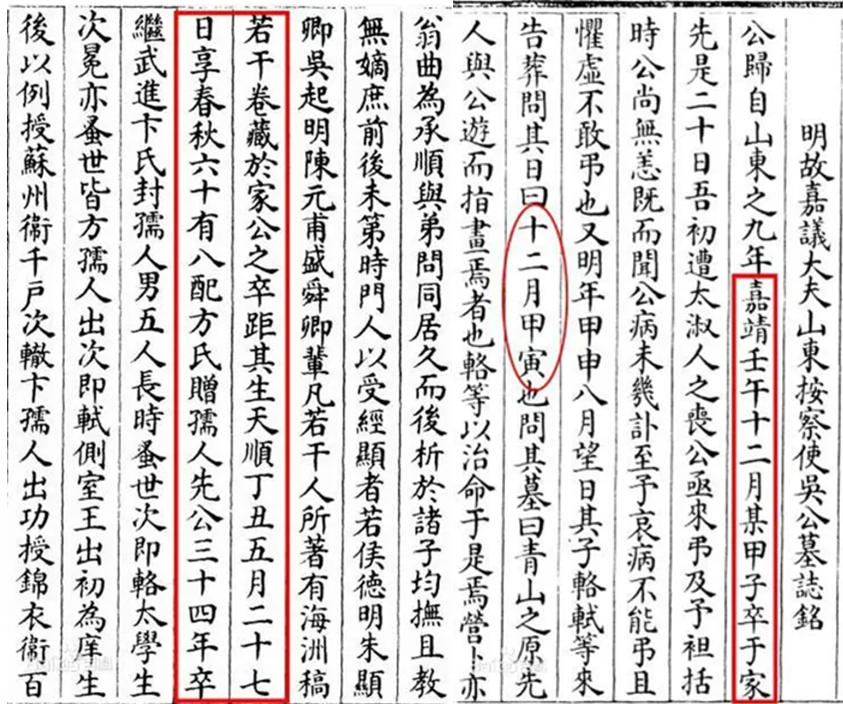 明故嘉議大夫山東按察使吳公墓誌銘
公歸自山東之九年嘉靖壬午十二月某甲子卒于家
先是二十日吾初遭太淑人之喪公亟來弔及予袒括
時公尚無恙既而聞公病未幾訃至予哀病不能弔且
懼虛不敢弔也又明年甲申八月望日其子輅軾等來
告葬問其日曰十二月甲寅也問其墓曰青山之原先
人與公遊而指畫焉者也輅等以治命于是焉營卜亦
翁曲為承順與弟問同居久而後析於諸子均撫且教
無嫡庶前後未第時門人以受經顯者若侯德明朱顯
卿吳起明陳元甫盛舜卿輩凡若干人所著有海洲稿
若干卷藏於家公之卒距其生天順丁丑五月二十七
日享春秋六十有八配方氏贈孺人先公三十四年卒
繼武進卞氏封孺人男五人長時蚤世次即輅太學生
次冕亦蚤世皆方孺人出次即軾側室王出初為庠生
後以例授蘇州衞千戶次轍卞孺人出功授錦衣衞百